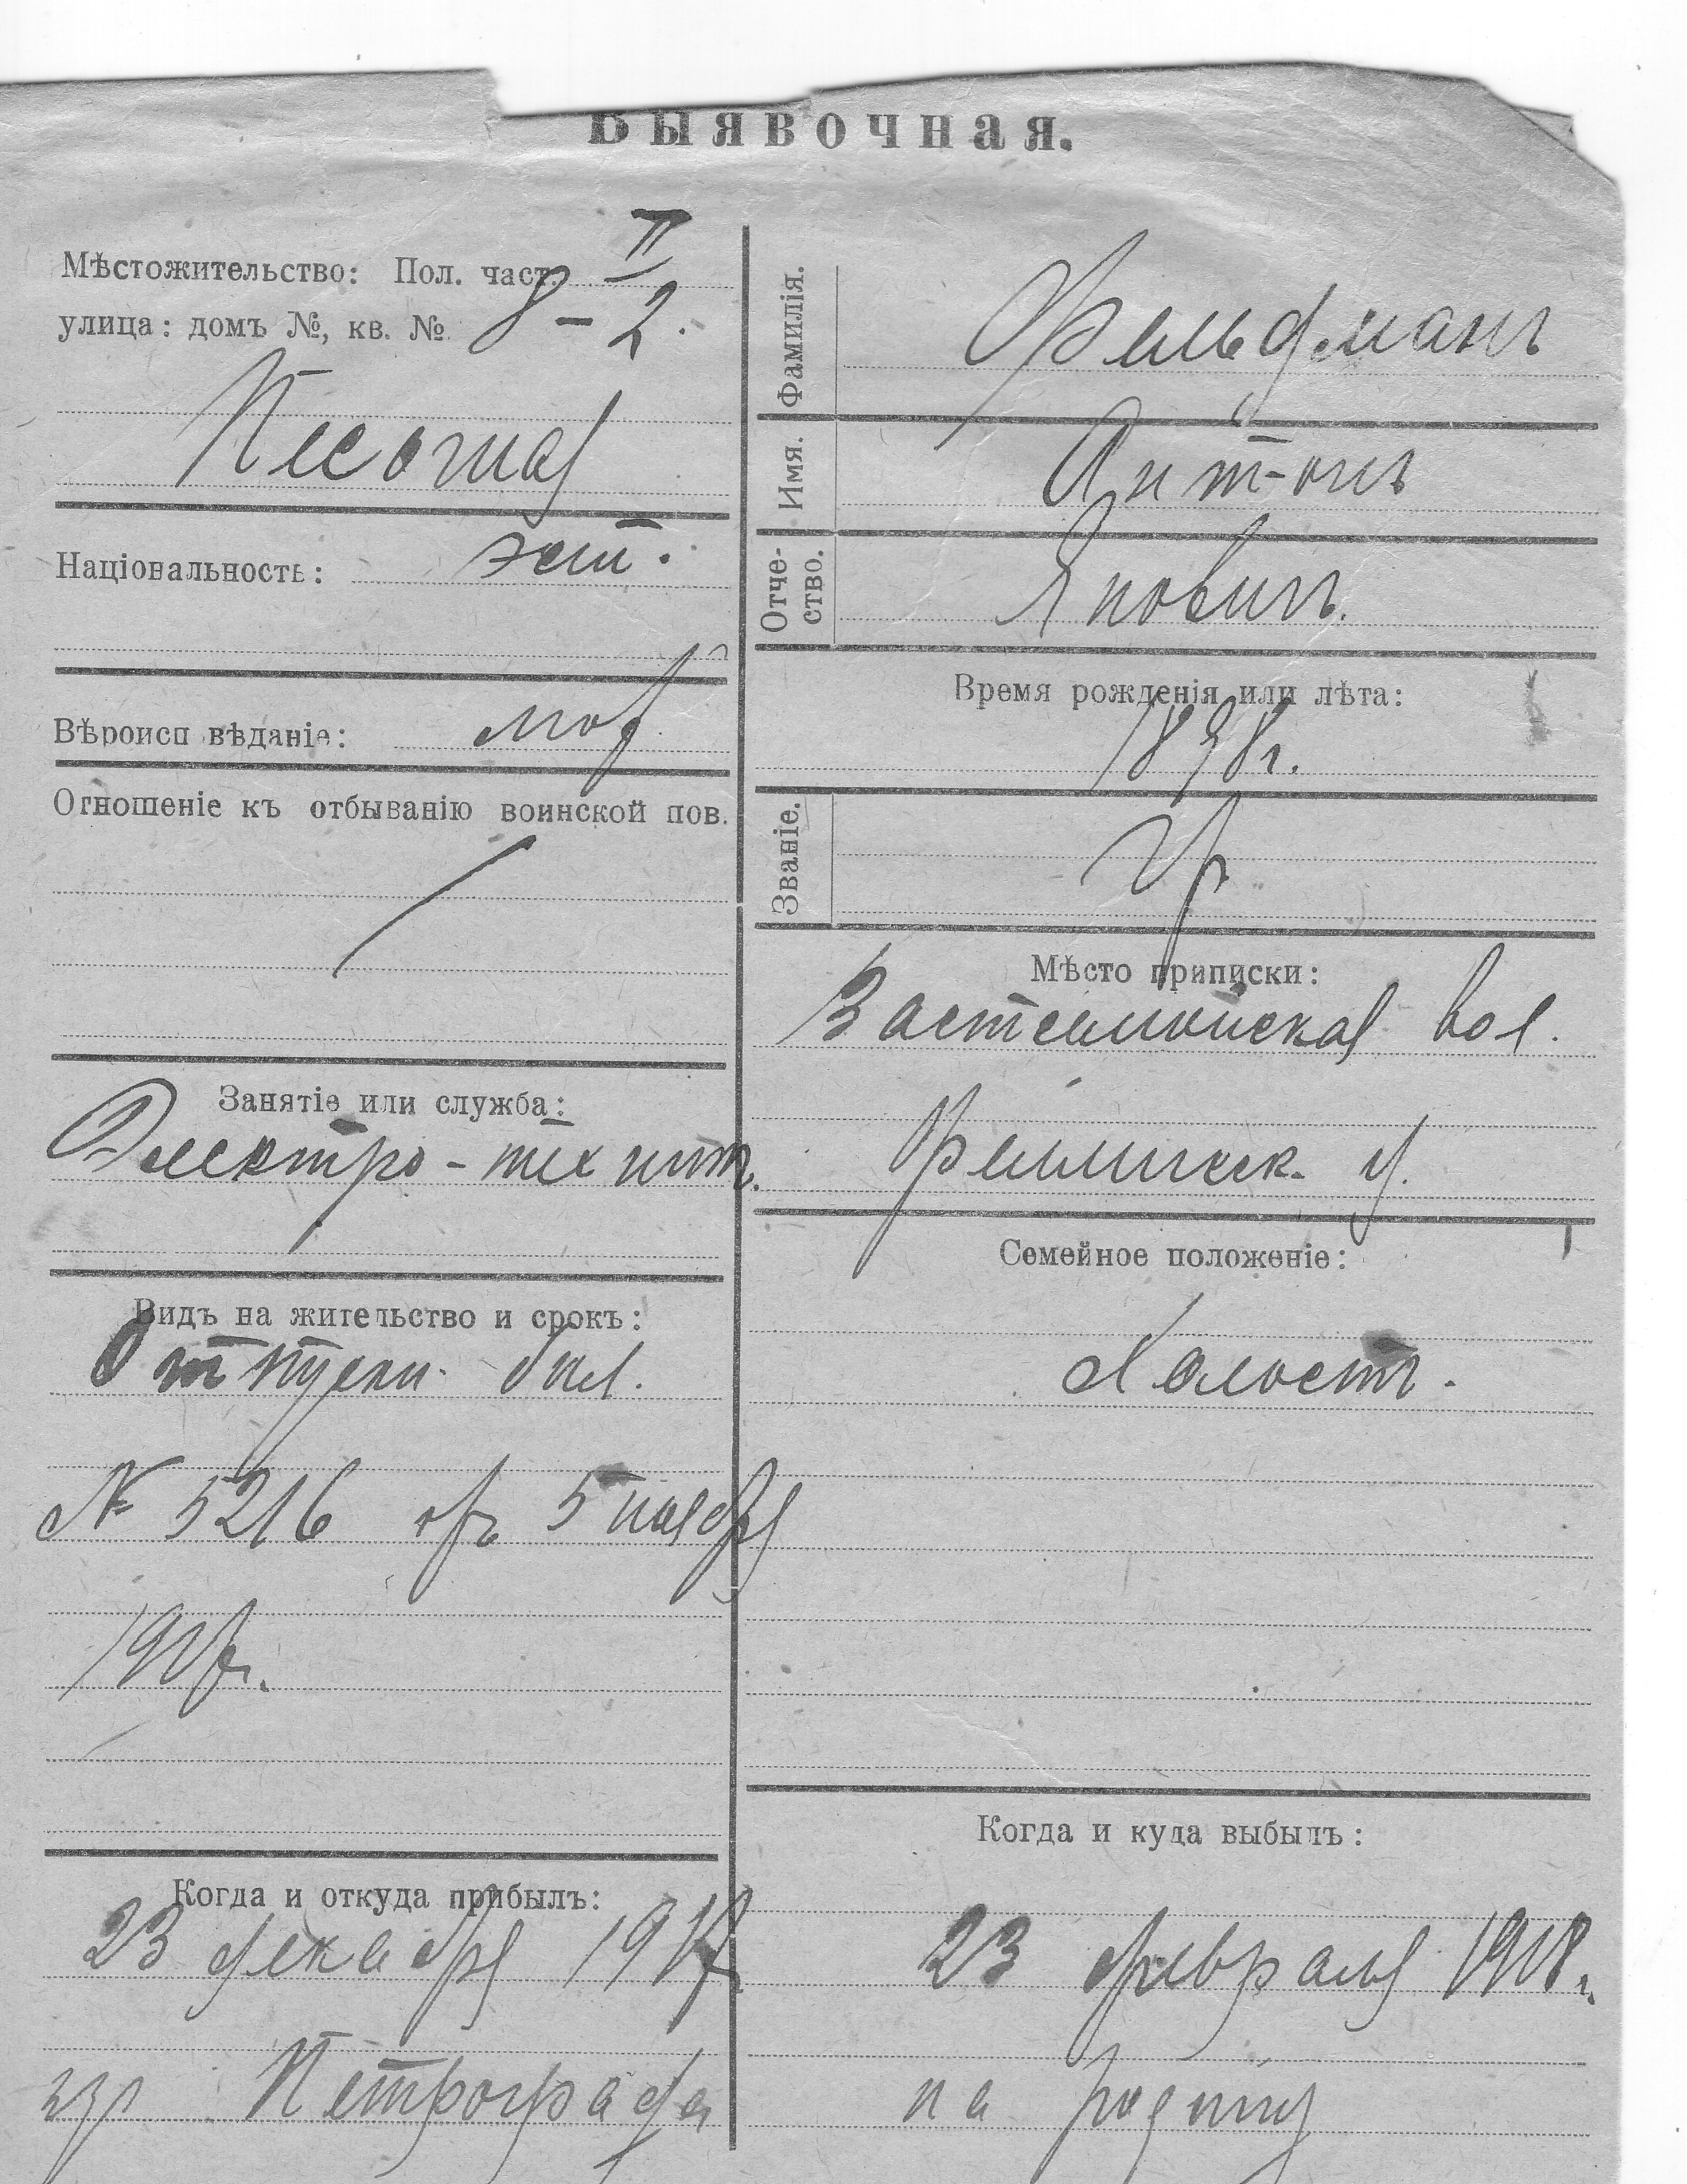 Выявочная.
Мѣстожительство: Пол. част. II
улица: домъ №, кв. № 8-2.
Песочная
Національность: эст.
Вѣроисповѣданіе: лют.
Отношеніе къ отбыванію воинской пов.
Занятіе или служба:
Электро-техникъ.
Видъ на жительство и срокъ:
Отпускн. бил.
№ 5216 отъ 5 ноября
1917г.
Когда и откуда прибылъ:
23 декабря 1917
изъ Петрограда
Фамилія. Фельдманъ
Имя. Антонъ
Отчество. Яновичъ.
Время рожденія или лѣта:
1898г.
Званіе. Гр.
Мѣсто приписки:
вол.
Феллинск. у.
Семейное положеніе:
Холостъ.
Когда и куда выбылъ:
23 февраля 1918г.
на родину